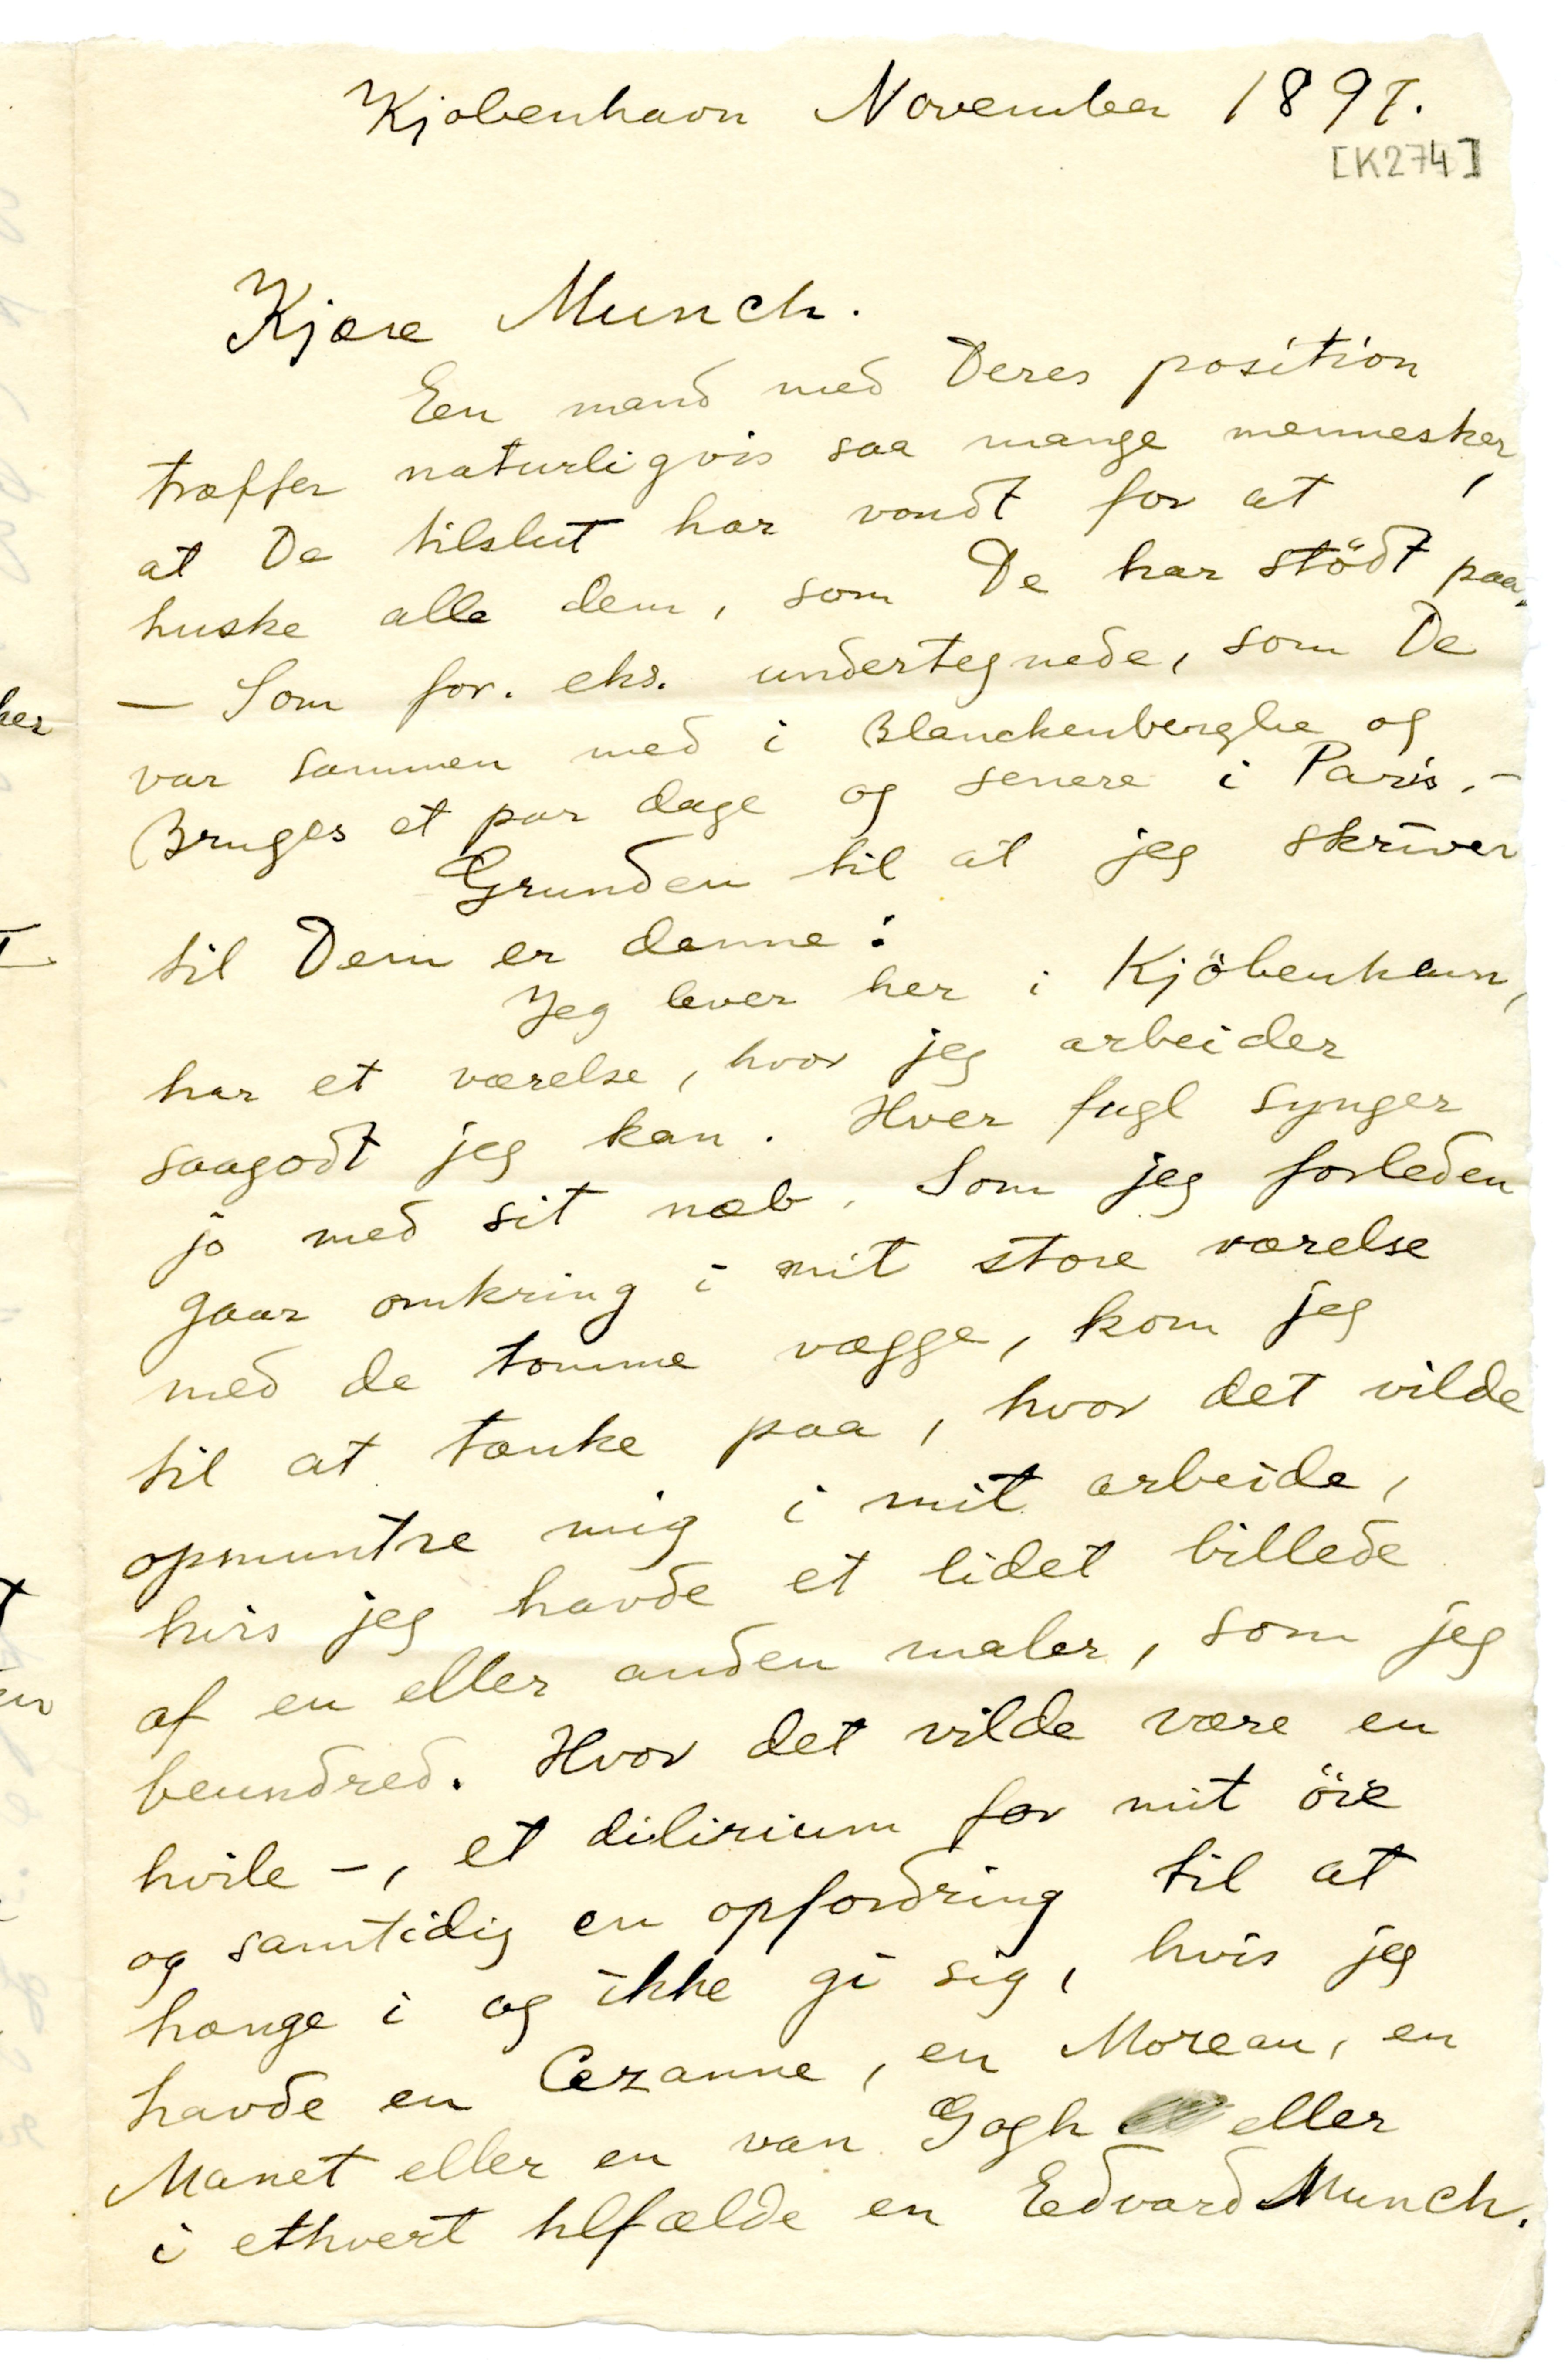 Kjøbenhavn November 1897.
[K274]
Kjære Munch.
En mand med Deres position
træffer naturligvis saa mange mennesker,
at De tilslut har vondt for at
huske alle dem, som De har stödt paa.
— Som for. eks. undertegnede, som De
var sammen med i Blanckenberghe og
Bruges et par dage og senere i Paris. –
Grunden til at jeg skriver
til Dem er denne:
Jeg lever her i Kjöbenhavn,
har et værelse, hvor jeg arbeider
saagodt jeg kan. Hver fugl synger
jo med sit næb. Som jeg forleden
gaar omkring i mit store værelse
med de tomme vægge, kom jeg
til at tænke paa, hvor det vilde
opmuntre mig i mit arbeide,
hvis jeg havde et lidet billede
af en eller anden maler, som jeg
beundred. Hvor det vilde være en
hvile –, et dilirium for mit öie
og samtidig en opfordring til at
hænge i og ikke gi sig, hvis jeg
havde en Cezanne, en Moreau, en
Manet eller en van Gogh eller
i ethvert tilfælde en Edvard Munch.